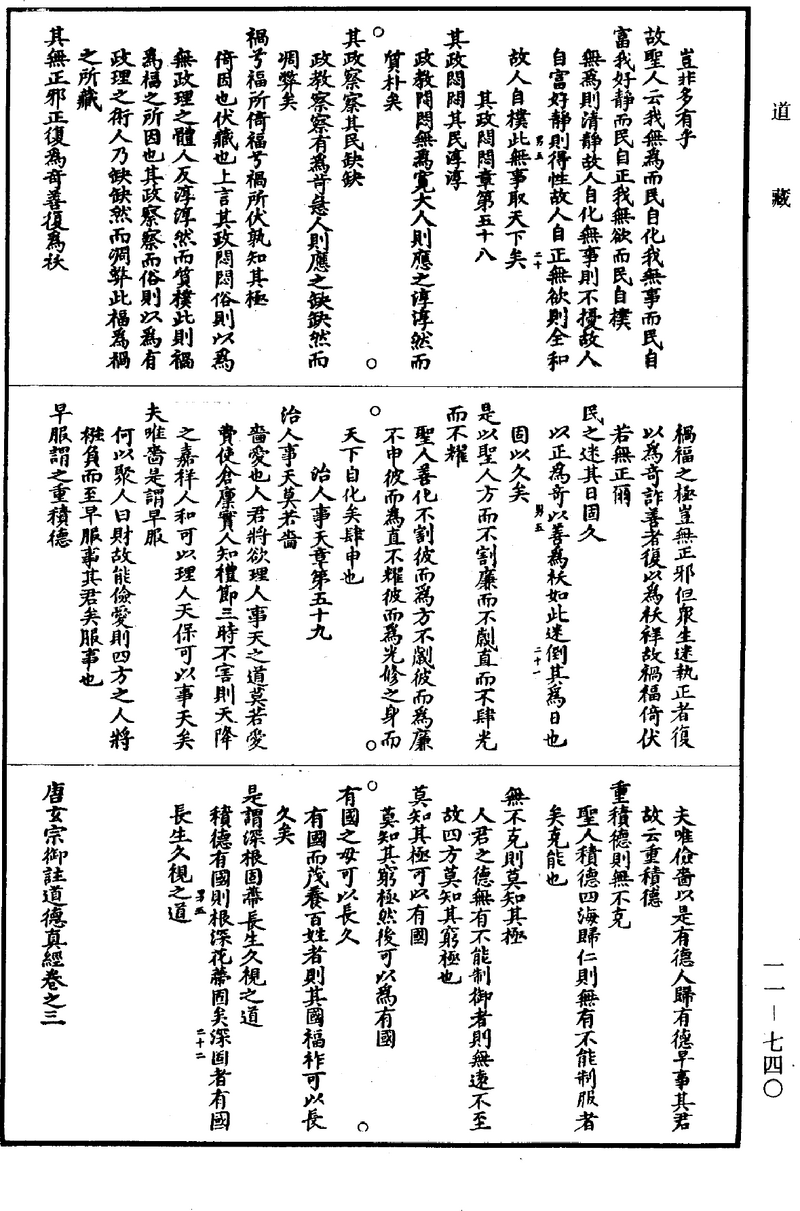 道藏
豈非多有乎
故聖人云我無為而民自化我無事而民自
富我好靜而民自正我無欲而民自樸
無為則清靜故人自化無事則不擾故人
自富好靜則得性故人自正無欲則全和
男五
二十
故人自樸此無事取天下矣
其政悶悶章第五十八
其政悶悶其民淳淳
政教悶悶無為寬大人則應之淳淳然而
質朴矣
其政察察其民缺缺
政教察察有為苛急人則應之缺缺然而
凋弊矣
禍兮福所倚福兮禍所伏孰知其極
倚因也伏藏也上言其政悶悶俗則以為
無政理之體人反淳淳然而質樸此則禍
為福之所因也其政察察而俗則以為有
政理之術人乃缺缺然而凋弊此福為禍
之所藏
其無正邪正復為奇善復為祅
禍福之極豈無正邪但眾生迷執正者復
以為奇詐善者復以為祅祥故禍福倚伏
若無正爾
民之迷其日固久
以正為奇以善為祅如此迷倒其為日也
男五
二十一
固以久矣
是以聖人方而不割廉而不劌直而不肆光
而不耀
聖人善化不割彼而為方不劌彼而為廉
不申彼而為直不耀彼而為光修之身而
天下自化矣肆申也
治人事天章第五十九
治人事天莫若嗇
嗇愛也人君將欲理人事天之道莫若愛
費使倉廩實人知禮節三時不害則天降
之嘉祥人和可以理人天保可以事天矣
夫唯嗇是謂早服
何以聚人曰財故能儉愛則四方之人將
襁負而至早服事其君矣服事也
早服謂之重積德
夫唯儉嗇以是有德人歸有德早事其君
故云重積德
重積德則無不克
聖人積德四海歸仁則無有不能制服者
矣克能也
無不克則莫知其極
人君之德無有不能制御者則無遠不至
故四方莫知其窮極也
莫知其極可以有國
莫知其窮極然後可以為有國
有國之母可以長久
有國而茂養百姓者則其國福祚可以長
久矣
是謂深根固蔕長生久視之道
積德有國則根深花蔕固矣深固者有國
男五
二十二
長生久視之道
唐玄宗御註道德真經卷之三
一一－七四〇